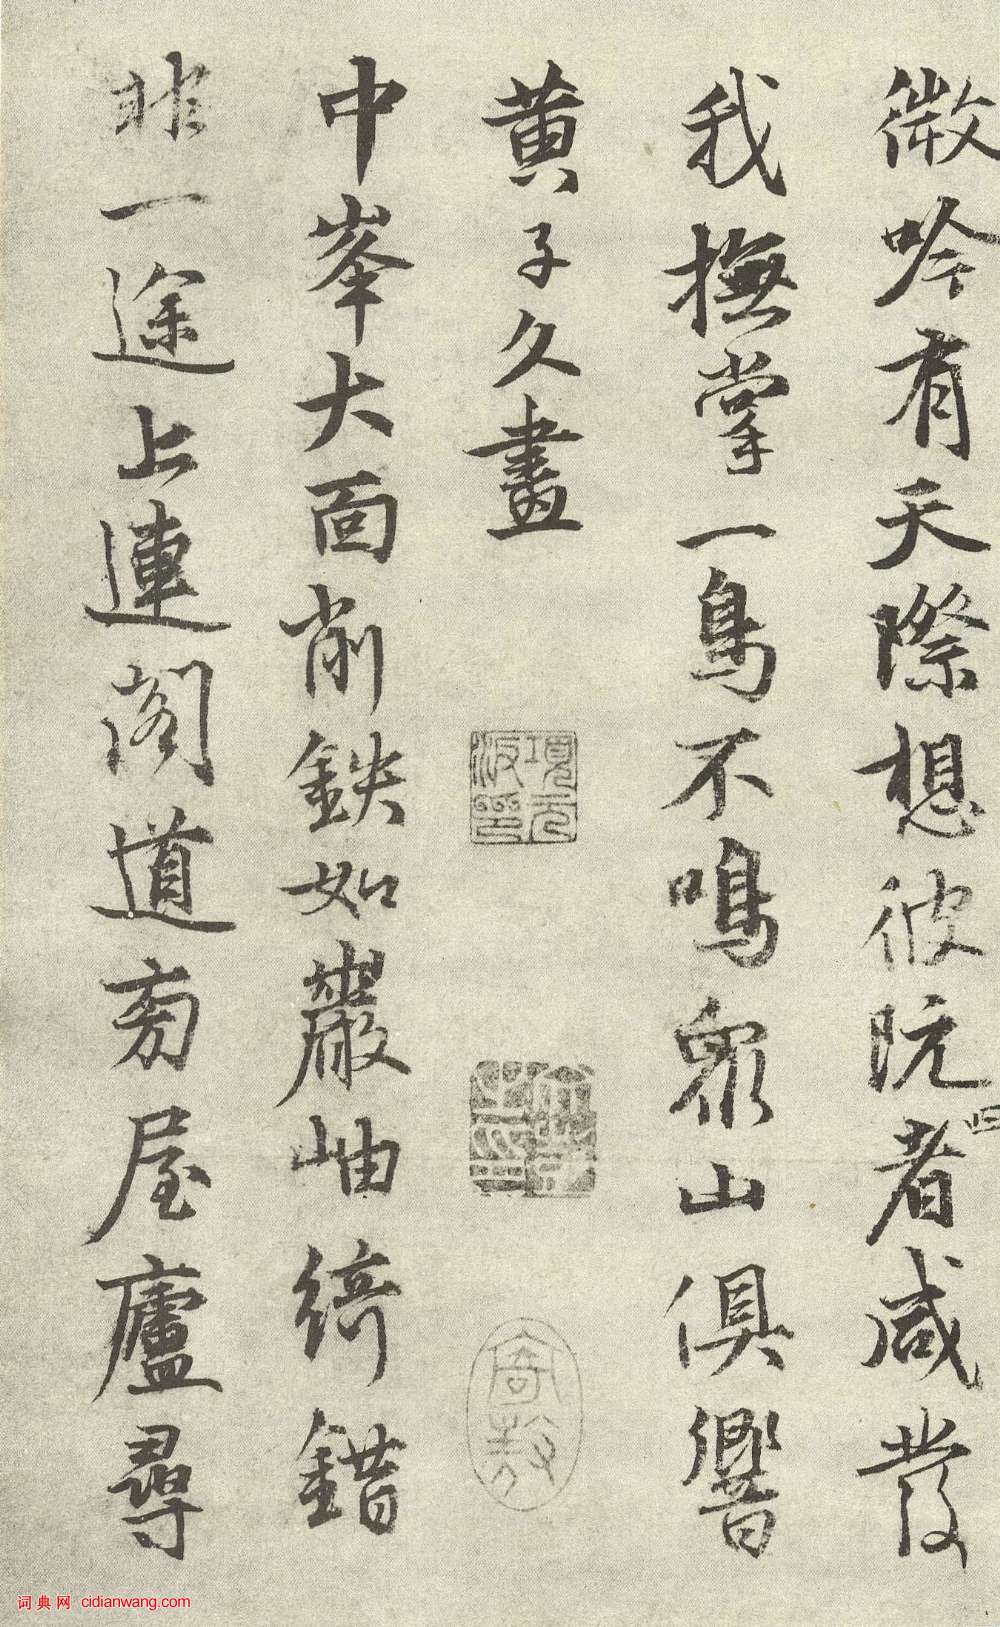 微吟有天際想彼阮者咸發
我撫掌一鳥不鳴眾山俱響
黃子久畫
中峯大面削鉄如巖岫綺錯
非一途上連閣道旁屋廬尋
項元汴印
词典网 cidianwang.com